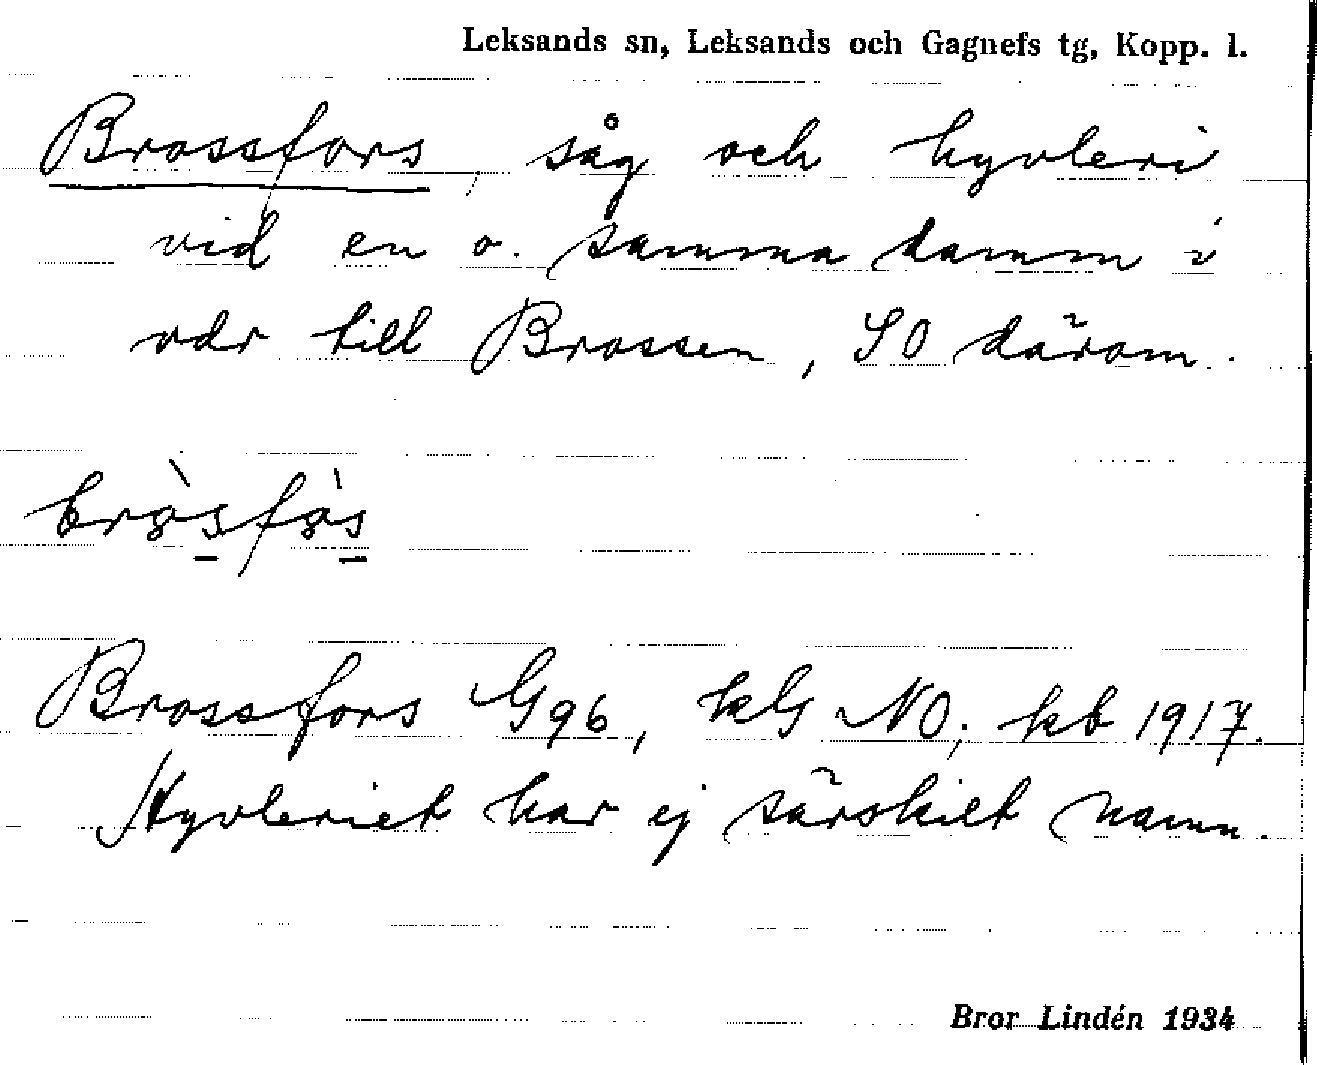 Leksands sn, Leksands och Gagnefs tg, Kopp. l.
Brossfors, såg och hyvleri
vid en o. samma damm i
vdr till Brossen, SO därom.
bròsfòs
Brossfors G96, kG NO; kb 1917.
Hyvleriet har ej särskilt namn.
Bror Lindén 1934